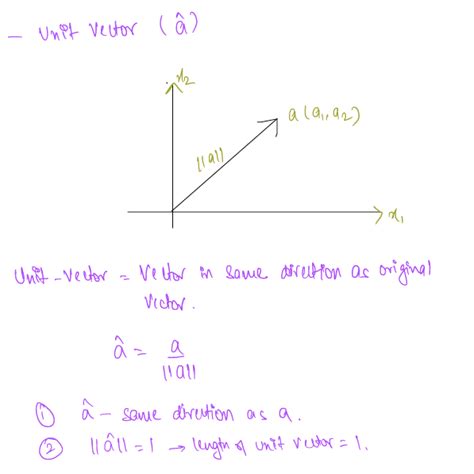 - Unit Vector (â)
x₂
a (a₁, a₂)
||a||
x₁
Unit-vector = Vector in same direction as original
Vector.
â = a
||a||
① â - same direction as a.
② ||â|| = 1 → length of unit vector = 1.